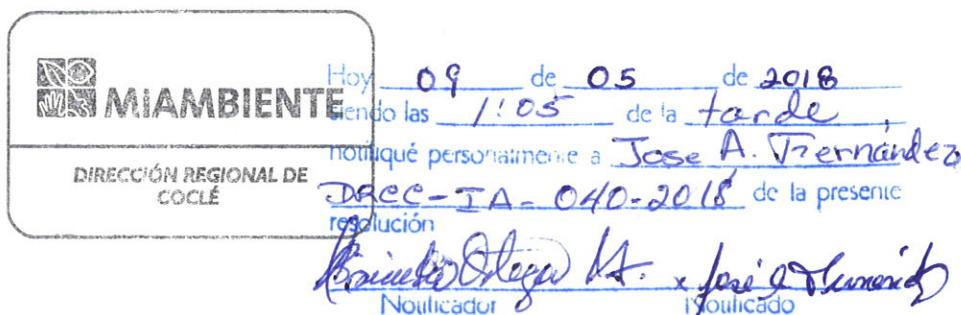 MiAMBIENTE
DIRECCIÓN REGIONAL DE
COCLÉ
Hoy 09 de 05 de 2018
siendo las 1:05 de la tarde,
notifiqué personalmente a Jose A.
DRCC-IA-040-2018 de la presente
resolución
Notificador Notificado